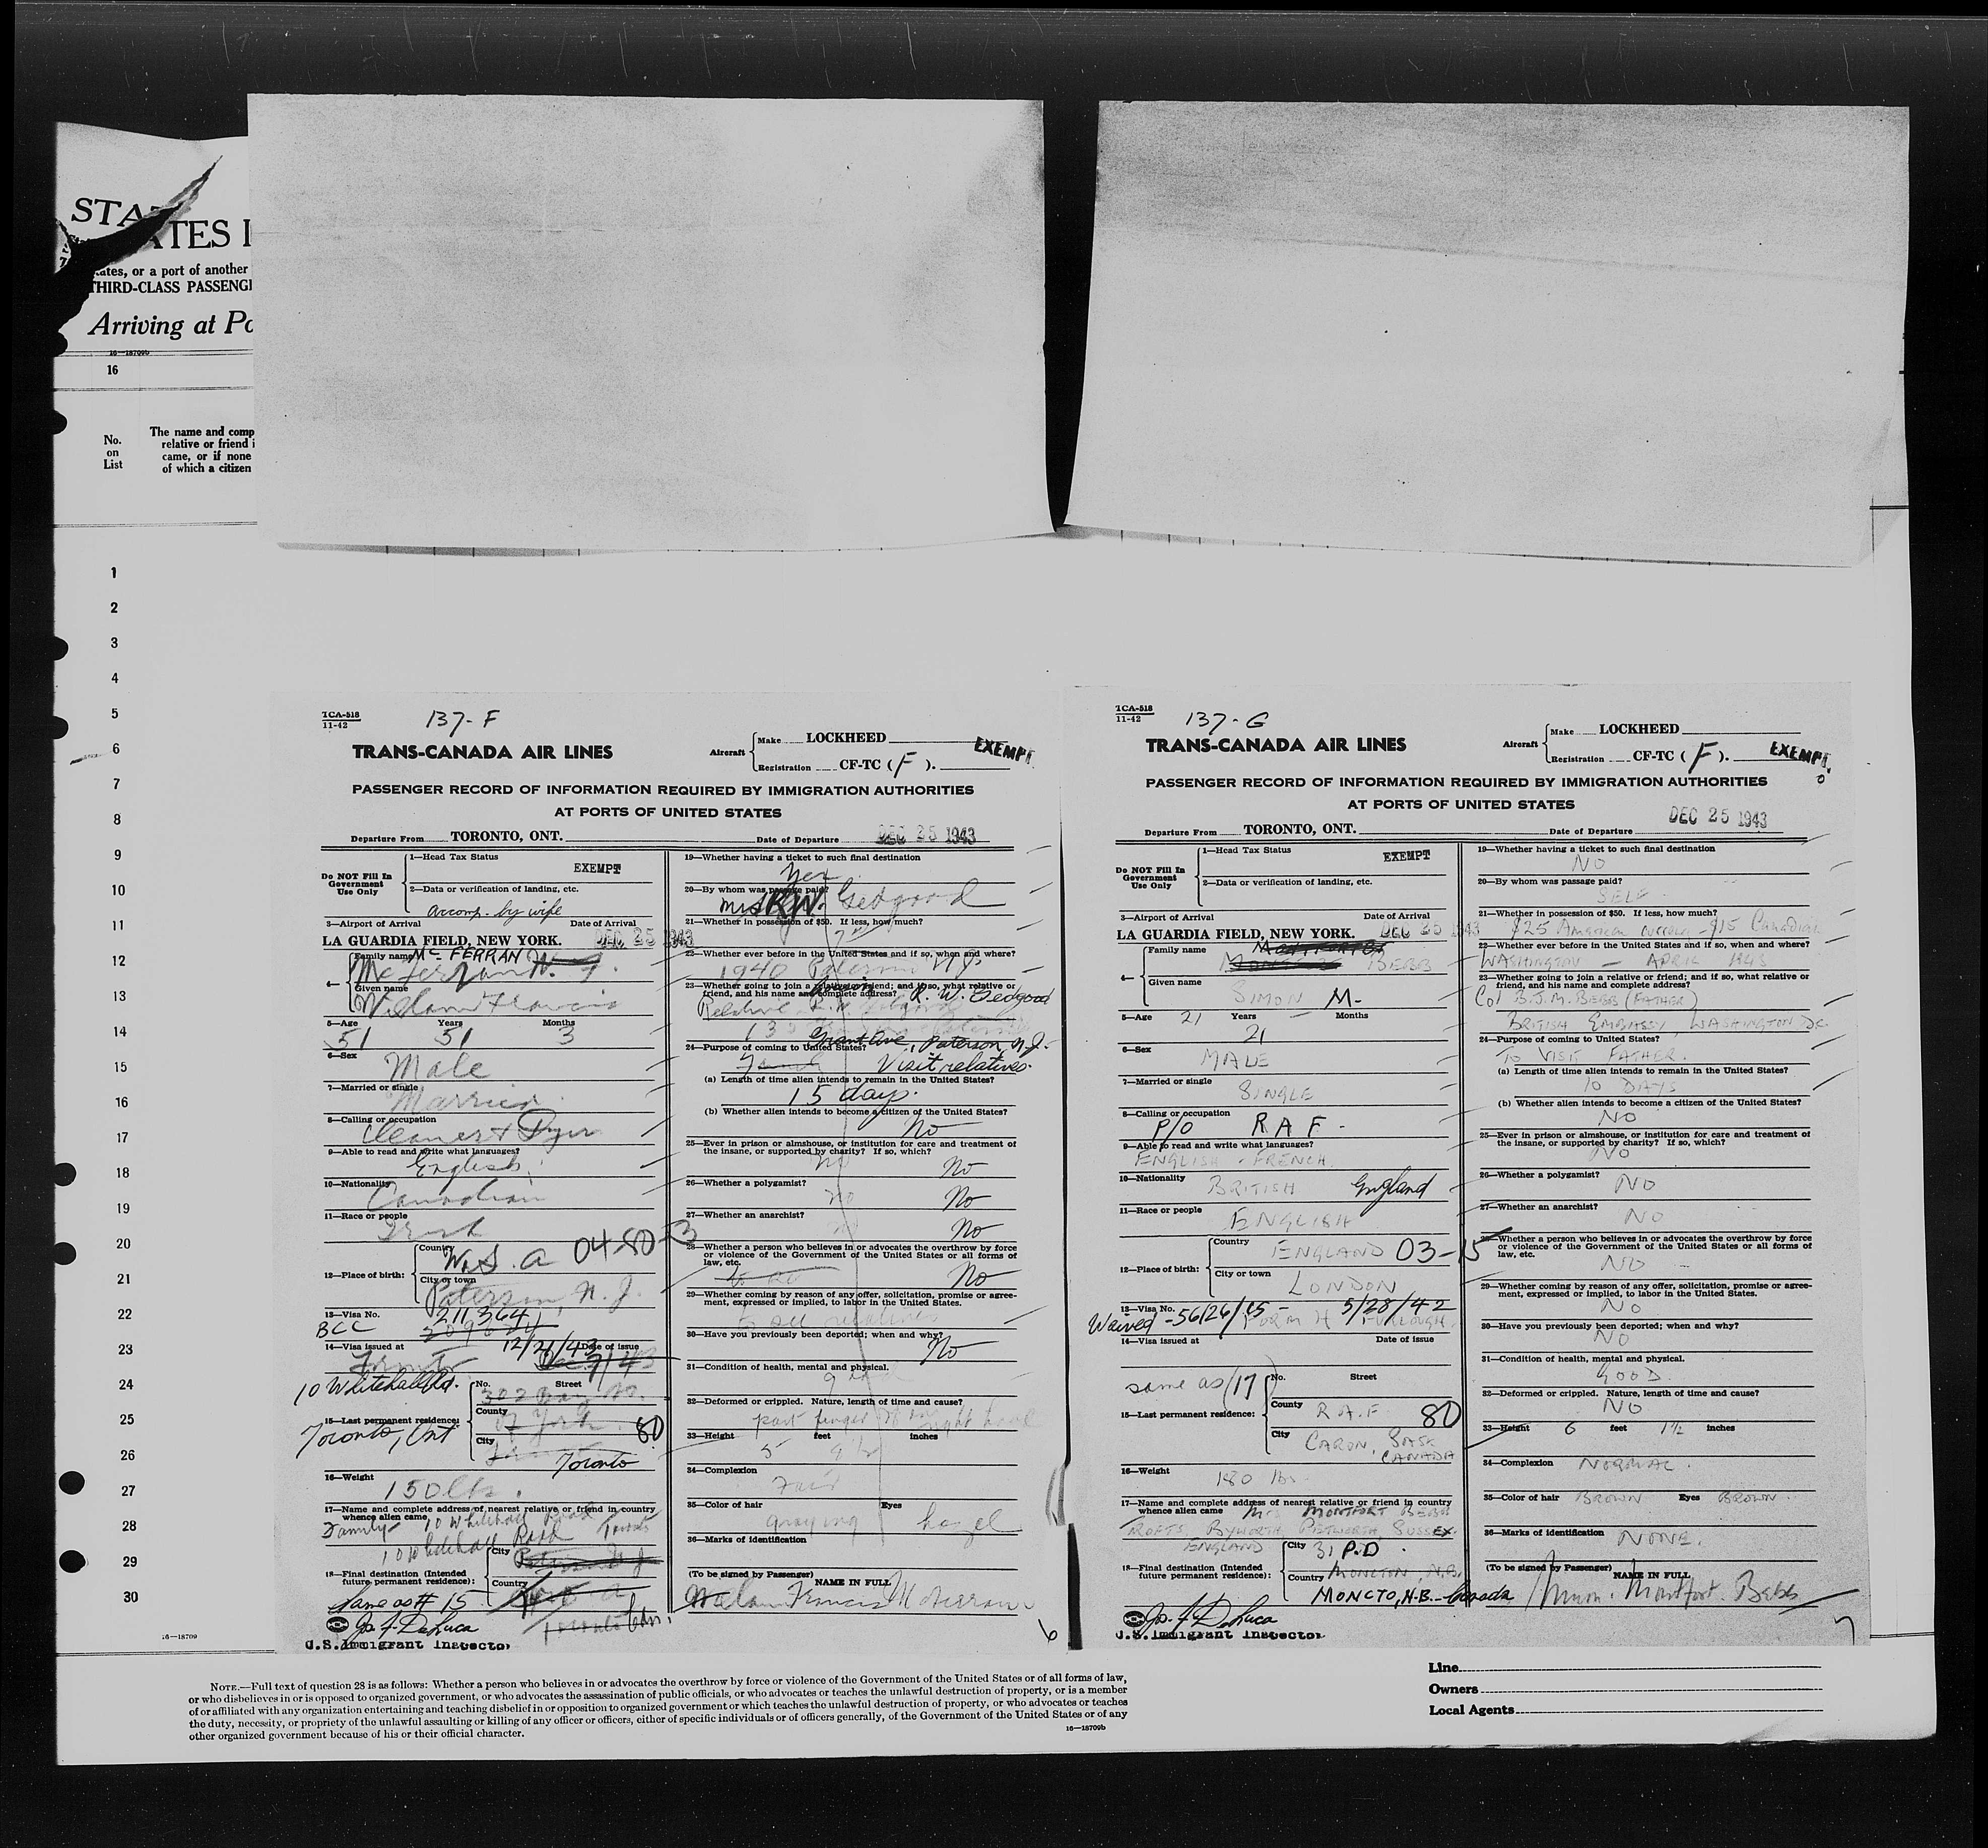 STATES I
ates, or a port of another
THIRD-CLASS PASSENG
Arriving at Po
16—18709b
16
No.
on
List
The name and comp
relative or friend i
came, or if none
of which a citizen
1
2
3
4
5
6
7
8
9
10
11
12
13
14
15
16
17
18
19
20
21
22
23
24
25
26
27
28
29
30
16—18709
TCA-518
11-42
137-F
TRANS-CANADA AIR LINES
Aircraft
Make LOCKHEED
Registration CF-TC ( F ).
EXEMPT
PASSENGER RECORD OF INFORMATION REQUIRED BY IMMIGRATION AUTHORITIES
AT PORTS OF UNITED STATES
Departure From TORONTO, ONT. Date of Departure DEC 25 1943
Do NOT Fill In
Government
Use Only
1—Head Tax Status
EXEMPT
2—Data or verification of landing, etc.
accomp. by wife
3—Airport of Arrival Date of Arrival
LA GUARDIA FIELD, NEW YORK. DEC 25 1943
4— Family name Mc FERRAN
Given name
William Francis
5—Age Years Months
51 51 3
6—Sex
Male
7—Married or single
Married
8—Calling or occupation
Cleaner & Dyer
9—Able to read and write what languages?
English
10—Nationality
Canadian
11—Race or people
Irish
12—Place of birth:
Country
U.S.A 04-80-3
City or town
Paterson, N.J.
13—Visa No. 211364
BCC
14—Visa issued at 12/21/43 Date of issue
Toronto
10 Whitehall Rd.
No. Street
15—Last permanent residence:
County
80
Toronto, Ont
City
Toronto
16—Weight
150 lbs.
17—Name and complete address of nearest relative or friend in country
whence alien came
Family 10 Whitehall Road Toronto
10 Whitehall Road
18—Final destination (Intended
future permanent residence):
City
Paterson N J
Country
Same as # 15
Toronto Can.
Jos. F. DeLuca
U.S. Immigrant Inspector
19—Whether having a ticket to such final destination
Yes
20—By whom was passage paid?
Mrs R.W. Gedgood
21—Whether in possession of $50. If less, how much?
22—Whether ever before in the United States and if so, when and where?
1940 Paterson N.J.
23—Whether going to join a relative or friend; and if so, what relative or
friend, and his name and complete address?
Cousin R. W. Gedgood
Relative
Grant Ave, Paterson, N.J.
24—Purpose of coming to United States?
Visit relatives.
(a) Length of time alien intends to remain in the United States?
15 days.
(b) Whether alien intends to become a citizen of the United States?
No
25—Ever in prison or almshouse, or institution for care and treatment of
the insane, or supported by charity? If so, which?
no No
26—Whether a polygamist?
no No
27—Whether an anarchist?
no No
28—Whether a person who believes in or advocates the overthrow by force
or violence of the Government of the United States or all forms of
law, etc.
No
29—Whether coming by reason of any offer, solicitation, promise or agree-
ment, expressed or implied, to labor in the United States.
30—Have you previously been deported; when and why?
No
31—Condition of health, mental and physical.
good
32—Deformed or crippled. Nature, length of time and cause?
part finger of right hand
33—Height feet inches
5 9½
34—Complexion
Fair
35—Color of hair Eyes
graying hazel
36—Marks of identification
(To be signed by Passenger)
NAME IN FULL
William Francis McFerran
6
TCA-518
11-42
137-G
TRANS-CANADA AIR LINES
Aircraft
Make LOCKHEED
Registration CF-TC ( F ).
EXEMPT
PASSENGER RECORD OF INFORMATION REQUIRED BY IMMIGRATION AUTHORITIES
AT PORTS OF UNITED STATES
DEC 25 1943
Departure From TORONTO, ONT. Date of Departure
Do NOT Fill In
Government
Use Only
1—Head Tax Status
EXEMPT
2—Data or verification of landing, etc.
3—Airport of Arrival Date of Arrival
LA GUARDIA FIELD, NEW YORK. DEC 25 1943
4— Family name
BEBB
Given name
SIMON M-
5—Age 21 Years — Months
21
6—Sex
MALE
7—Married or single
SINGLE
8—Calling or occupation
P/O RAF-
9—Able to read and write what languages?
ENGLISH - FRENCH
10—Nationality
BRITISH England
11—Race or people
ENGLISH
12—Place of birth:
Country
ENGLAND 03-15
City or town
LONDON
13—Visa No. 56/26/15 - 5/28/42
Waived - FORM H FURLOUGH
14—Visa issued at Date of issue
same as (17
No. Street
15—Last permanent residence:
County
R.A.F. 80
City
CARON, SASK
CANADA
16—Weight
180 lbs.
17—Name and complete address of nearest relative or friend in country
whence alien came Mrs MONTFORT BEBB
CROFTS, BYWORTH, PETWORTH, SUSSEX.
ENGLAND
18—Final destination (Intended
future permanent residence):
City 31 P.D.
Country MONCTON, N.B.
MONCTO, N.B. Canada
Jos. F. DeLuca
U.S. Immigrant Inspector
19—Whether having a ticket to such final destination
NO
20—By whom was passage paid?
SELF
21—Whether in possession of $50. If less, how much?
$25 American currency - $15 Canadian
22—Whether ever before in the United States and if so, when and where?
WASHINGTON — APRIL 1943
23—Whether going to join a relative or friend; and if so, what relative or
friend, and his name and complete address?
Col B.J.M. BEBB (FATHER)
BRITISH EMBASSY, WASHINGTON DC.
24—Purpose of coming to United States?
TO VISIT FATHER.
(a) Length of time alien intends to remain in the United States?
10 DAYS
(b) Whether alien intends to become a citizen of the United States?
NO
25—Ever in prison or almshouse, or institution for care and treatment of
the insane, or supported by charity? If so, which?
NO
26—Whether a polygamist?
NO
27—Whether an anarchist?
NO
28—Whether a person who believes in or advocates the overthrow by force
or violence of the Government of the United States or all forms of
law, etc.
NO
29—Whether coming by reason of any offer, solicitation, promise or agree-
ment, expressed or implied, to labor in the United States.
NO
30—Have you previously been deported; when and why?
NO
31—Condition of health, mental and physical.
GOOD.
32—Deformed or crippled. Nature, length of time and cause?
NO
33—Height 6 feet 1½ inches
34—Complexion NORMAL.
35—Color of hair BROWN Eyes BROWN.
36—Marks of identification
NONE.
(To be signed by Passenger)
NAME IN FULL
Simon. Montfort. Bebb
7
NOTE.—Full text of question 28 is as follows: Whether a person who believes in or advocates the overthrow by force or violence of the Government of the United States or of all forms of law,
or who disbelieves in or is opposed to organized government, or who advocates the assassination of public officials, or who advocates or teaches the unlawful destruction of property, or is a member
of or affiliated with any organization entertaining and teaching disbelief in or opposition to organized government or which teaches the unlawful destruction of property, or who advocates or teaches
the duty, necessity, or propriety of the unlawful assaulting or killing of any officer or officers, either of specific individuals or of officers generally, of the Government of the United States or of any
other organized government because of his or their official character.
16—18709b
Line
Owners
Local Agents